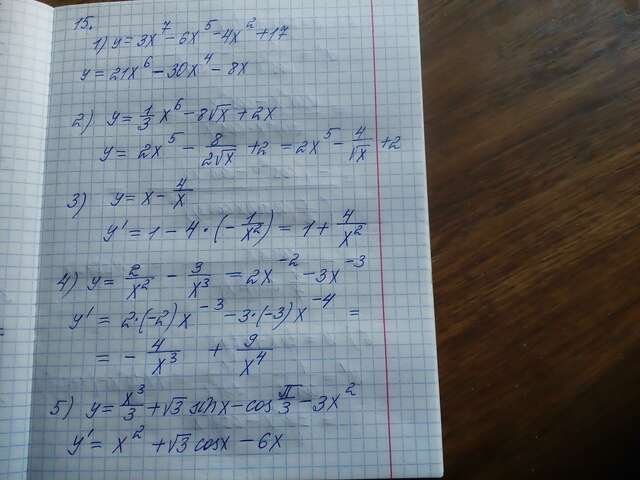 15.
1) y = 3x⁷ - 6x⁵ - 4x² + 17
y = 21x⁶ - 30x⁴ - 8x
2) y = 1/3 x⁶ - 8√x + 2x
y = 2x⁵ - 8/(2√x) + 2 = 2x⁵ - 4/√x + 2
3) y = x - 4/x
y' = 1 - 4 · (-1/x²) = 1 + 4/x²
4) y = 2/x² - 3/x³ = 2x⁻² - 3x⁻³
y' = 2·(-2)x⁻³ - 3·(-3)x⁻⁴ =
= - 4/x³ + 9/x⁴
5) y = x³/3 + √3 sinx - cos π/3 - 3x²
y' = x² + √3 cosx - 6x